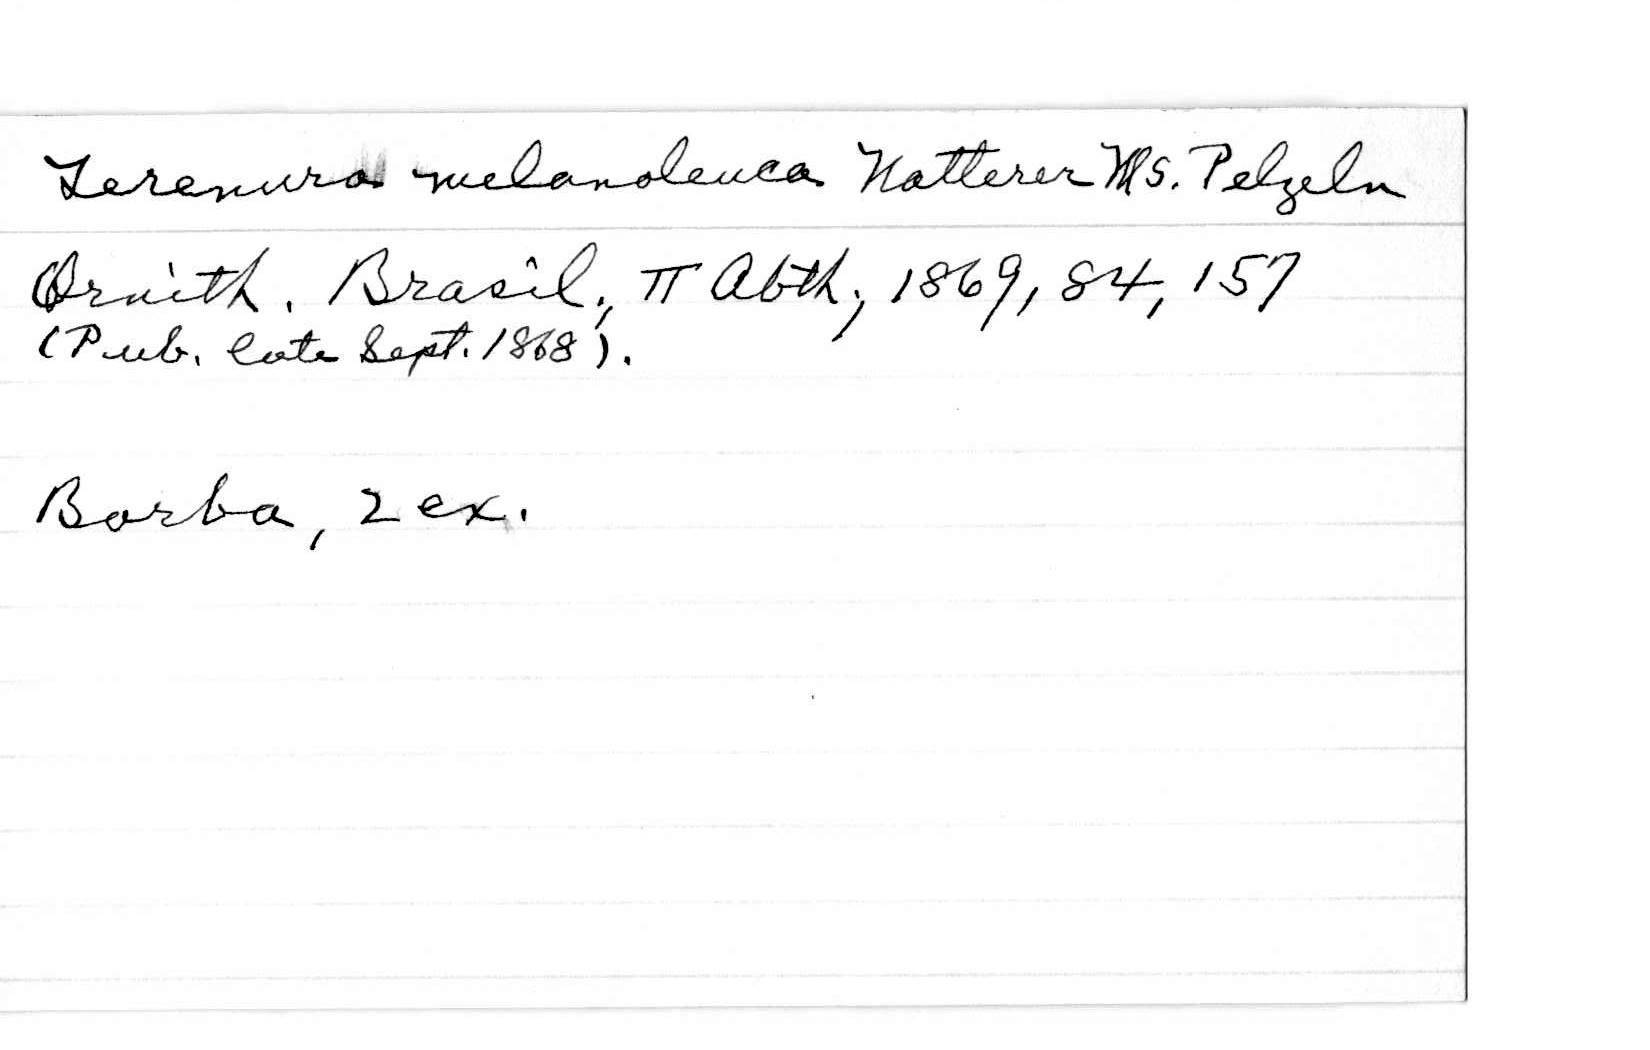 Terenura melanoleuca Natterer Ms. Pelzeln
Ornith. Brasil, II Abth; 1869, 84, 157
(Pub. late Sept. 1868).
Borba, 2 ex.